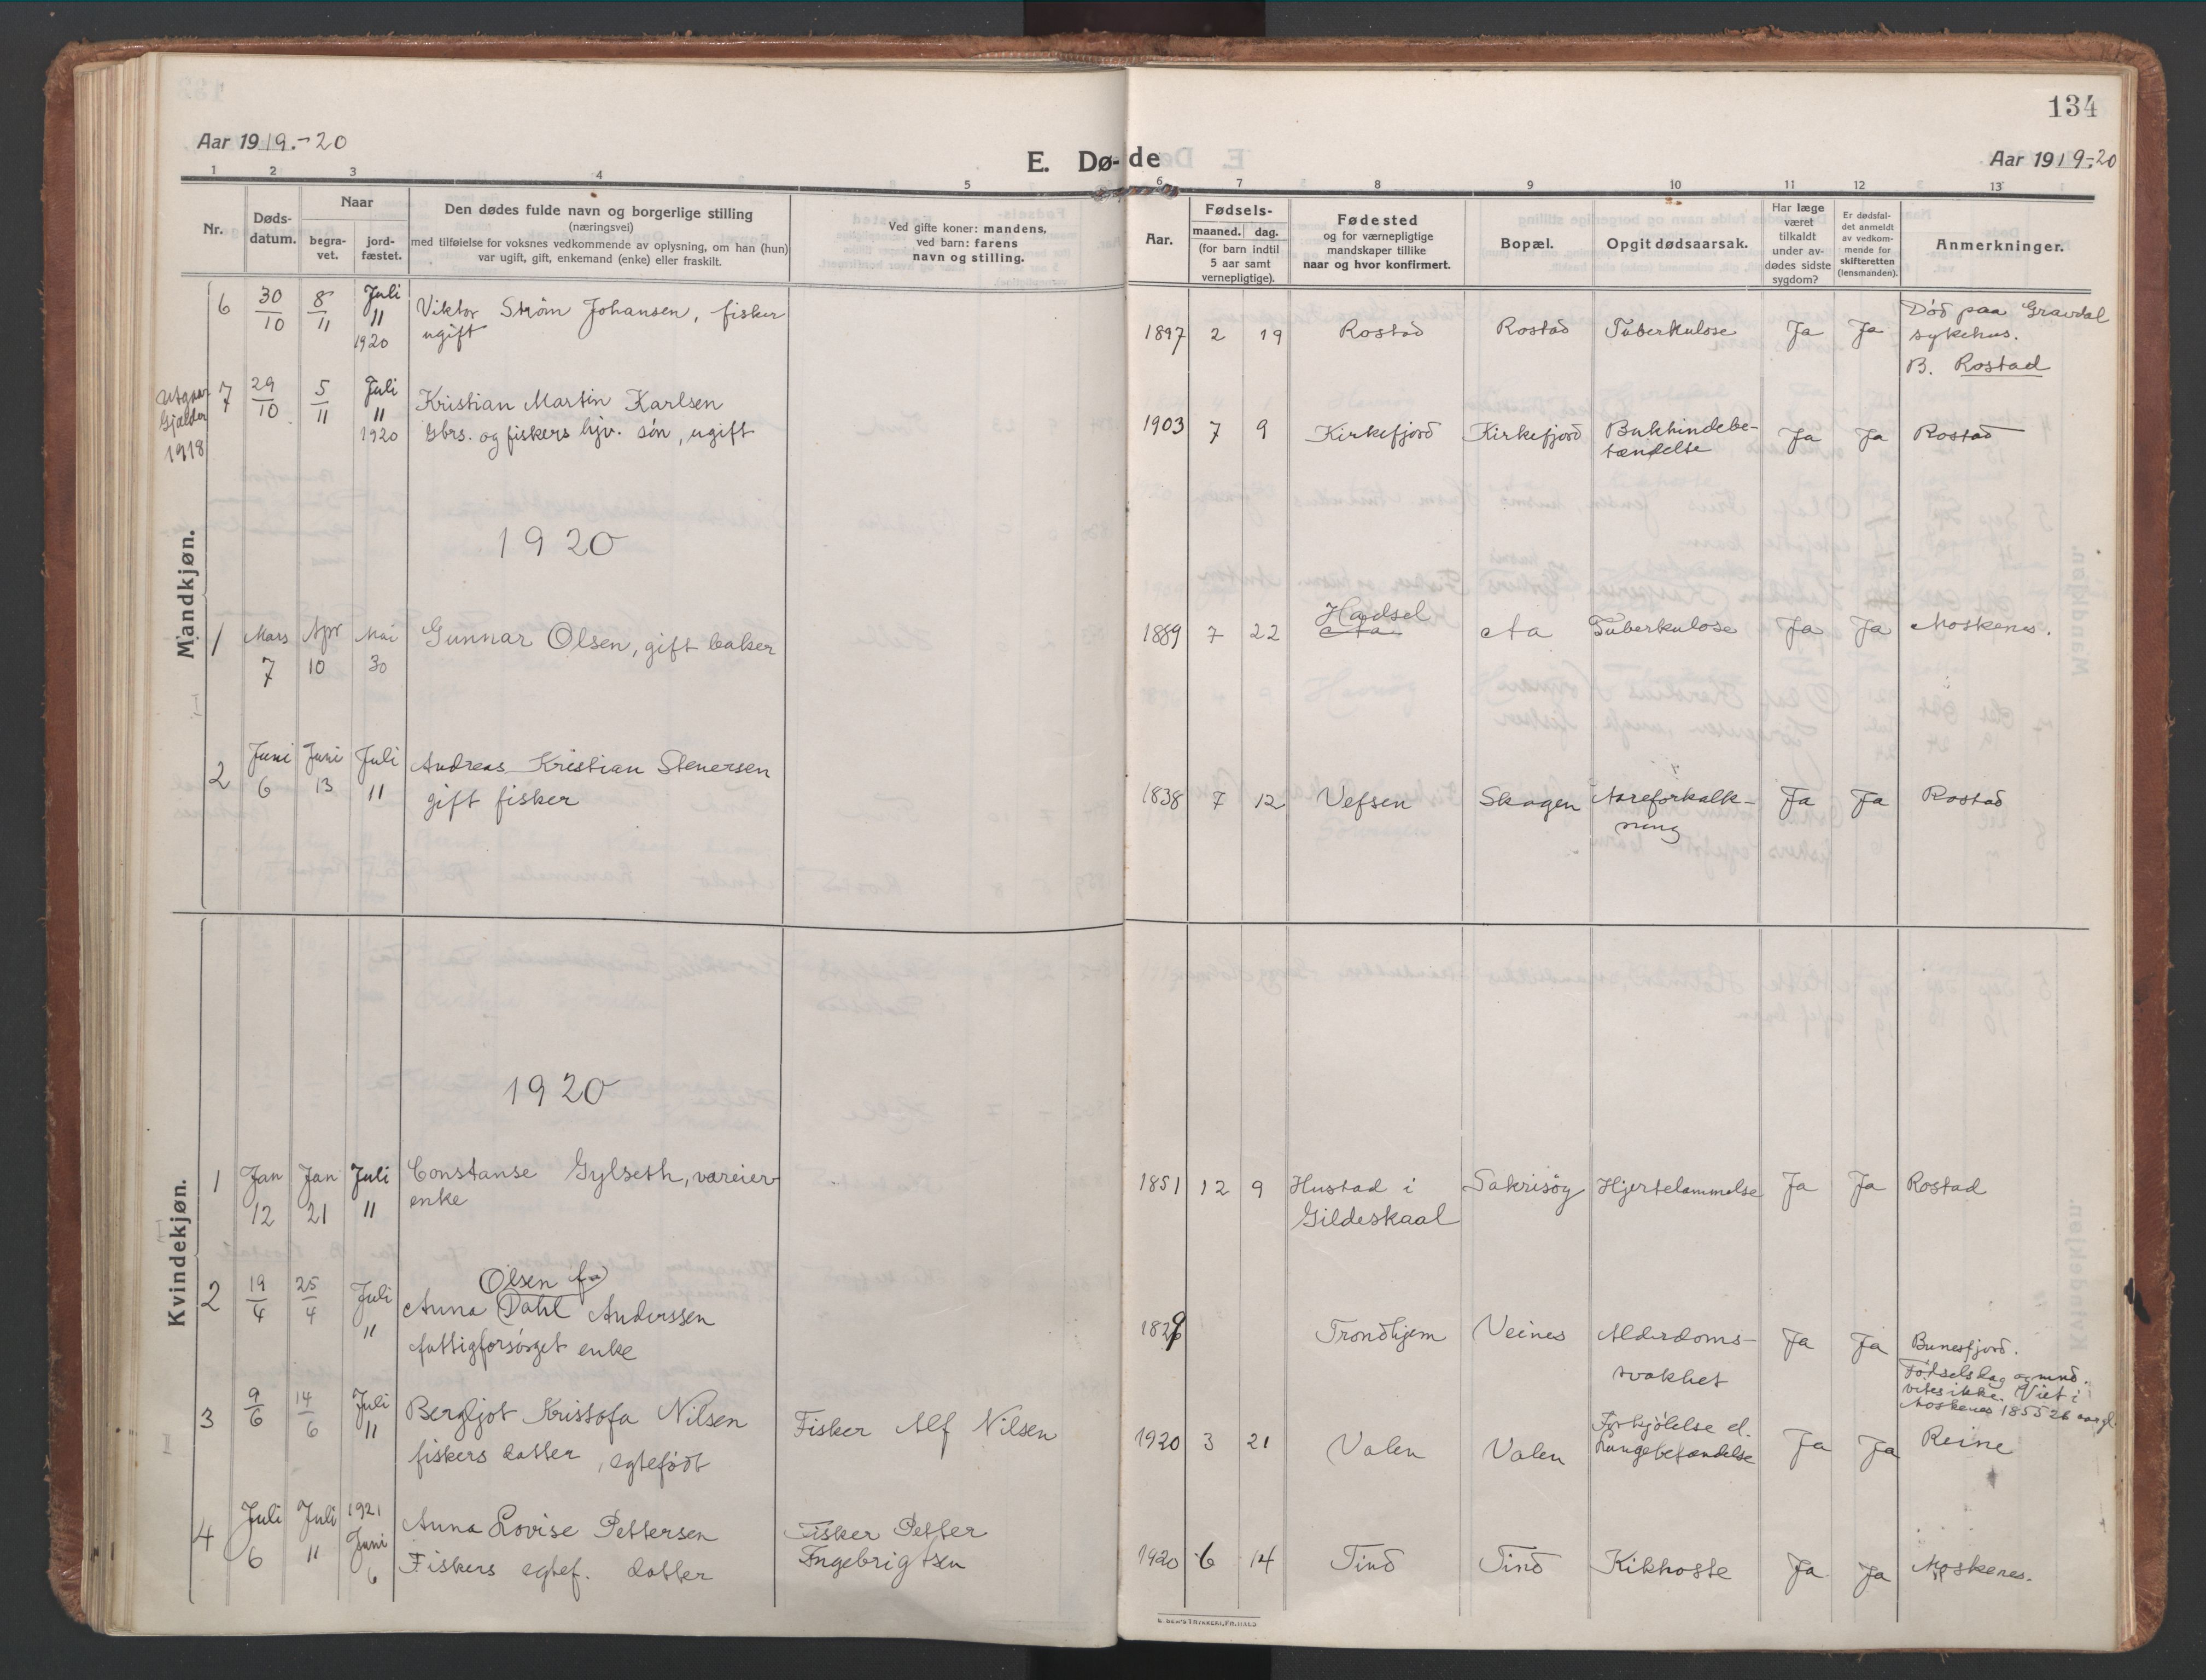 134
Aar 1919.-20
E. Dø-de
Aar 1919-20
1 2 3 4 5 6 7 8 9 10 11 12 13
Nr.
Døds-
datum.
Naar
begra-
vet.
jord-
fæstet.
Den dødes fulde navn og borgerlige stilling
(næringsvei)
med tilføielse for voksnes vedkommende av oplysning, om han (hun)
var ugift, gift, enkemand (enke) eller fraskilt.
Ved gifte koner: mandens,
ved barn: farens
navn og stilling.
Aar.
Fødsels-
maaned. dag.
(for barn indtil
5 aar samt
vernepligtige).
Fødested
og for værnepligtige
mandskaper tillike
naar og hvor konfirmert.
Bopæl.
Opgit dødsaarsak.
Har læge
været
tilkaldt
under av-
dødes sidste
sygdom?
Er dødsfal-
det anmeldt
av vedkom-
mende for
skifteretten
(lensmanden).
Anmerkninger.
Mandkjøn.
6 30/10 8/11 Juli 11 1920
Viktor Strøm Johansen, fisker
ugift
1897 2 19 Rostad Rostad Tuberkulose Ja Ja
Død paa Gravdal
sykehus.
B. Rostad
Utgaar
Gjælder
1918
7 29/10 5/11 Juli 11 1920
Kristian Martin Karlsen
Gbrs. og fiskers hjv. søn, ugift
1903 7 9 Kirkefjord Kirkefjord Bukhindebe-
tændelse Ja Ja Rostad
1920
1 Mars 7 Apr 10 Mai 30
Gunnar Olsen, gift baker
1889 7 22 Hadsel
Aa
Aa Tuberkulose Ja Ja Moskenes.
2 Juni 6 Juni 13 Juli 11
Andreas Kristian Stenersen
gift fisker
1838 7 12 Vefsen Skagen Aareforkalk-
ning Ja Ja Rostad
Kvindekjøn.
1920
1 Jan 12 Jan 21 Juli 11
Constanse Gylseth, væreier-
enke
1851 12 9 Hustad i
Gildeskaal
Sakrisøy Hjertelammelse Ja Ja Rostad
2 19/4 25/4 Juli 11
Olsen fra
Anna Dahl Anderssen
fattigforsørget enke
1829 Trondhjem Veines Alderdoms-
svakhet Ja Ja
Bunesfjord.
Fødselsdag og mnd.
vites ikke. Viet i
Moskenes 1855 26 aar gl.
3 9/6 14/6 Juli 11
Bergljot Kristofa Nilsen
fiskers datter, egtefødt
Fisker Alf Nilsen
1920 3 21 Valen Valen Forkjølelse el.
Lungebetændelse Ja Ja Reine
4 Juli 6 Juli 11 1921 Juni 6
Anna Lovise Pettersen
Fiskers egtef. datter
Fisker Petter
Ingebrigtsen
1920 6 14 Tind Tind Kikhoste Ja Ja Moskenes.